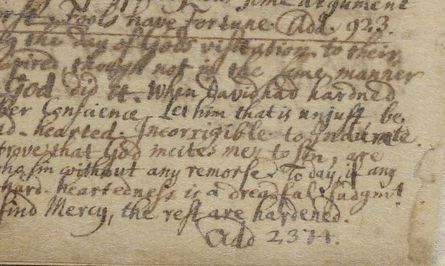 some argument
Fools have fortune. Add. 923.
the day of Gods visitation to their
though not in the same manner
God did it. When David had hardned
her Conscience. Let him that is unjust be
hearted. Incorrigible to Indurate.
prove that God incites men to sin, are
who sin without any remorse. To day if any
hard-heartedness is a dreadful Judgmt.
find Mercy, the rest are hardened.
Add 2374.